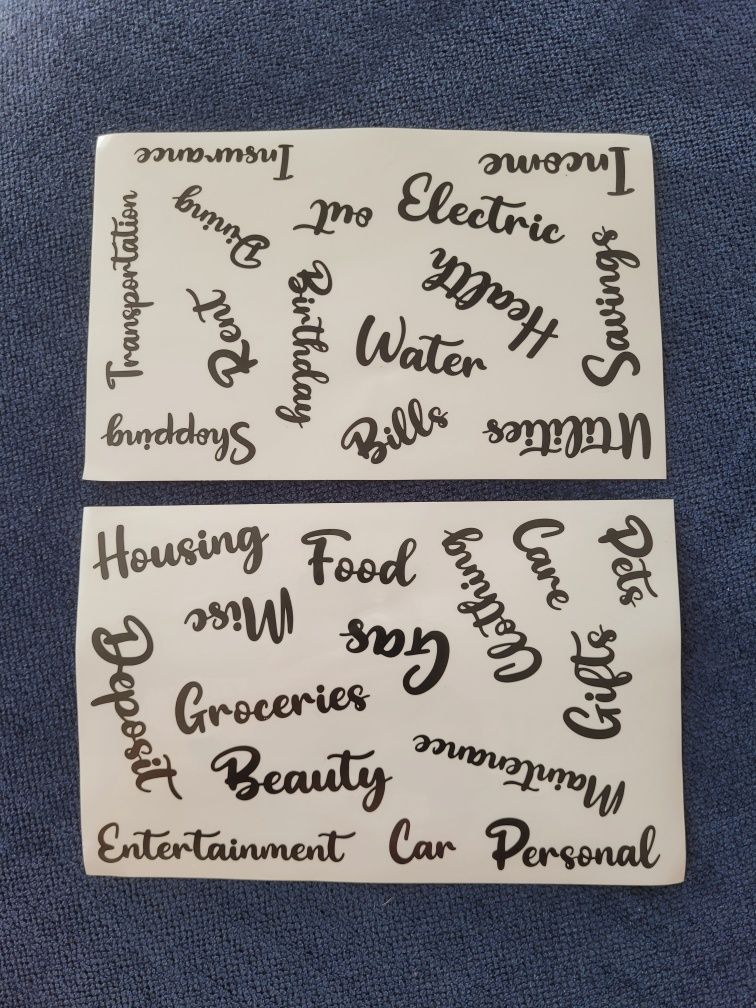 Insurance
Income
Transportation
Dining
out
Electric
Health
Savings
Rent
Birthday
Water
Shopping
Bills
Utilities
Housing
Food
Clothing
Care
Pets
Misc
Gas
Gifts
Deposit
Groceries
Beauty
Maintenance
Entertainment
Car
Personal